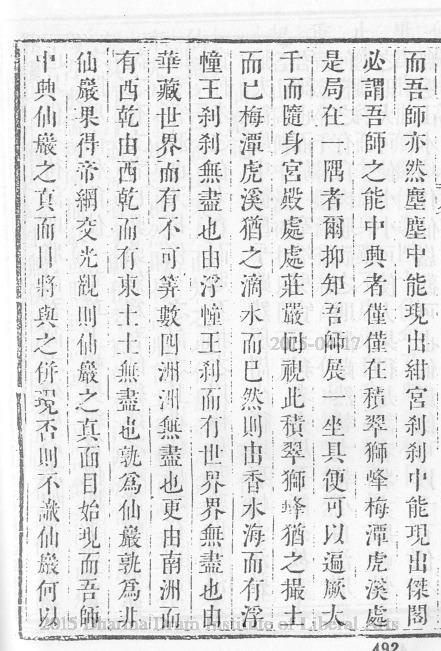 而吾師亦然塵塵中能現出紺宮刹刹中能現出傑閣
必謂吾師之能中興者僅僅在積翠獅峰梅潭虎溪處
是局在一隅者爾抑知吾師展一坐具便可以遍厥大
千而隨身宮殿處處莊嚴也視此積翠獅峰猶之撮土
而已梅潭虎溪猶之滴水而已然則由香水海而有浮
幢王刹刹無盡也由浮幢王刹而有世界界無盡也由
華藏世界而有不可筭數四洲洲無盡也更由南洲而
有西乾由西乾而有東土土無盡也孰為仙巖孰為非
仙巖果得帝網交光觀則仙巖之真面目始現而吾師
中興仙巖之真面目將與之併現否則不識仙巖何以
2015-04-17
2015 Dharma Drum Institute of Liberal Arts
492